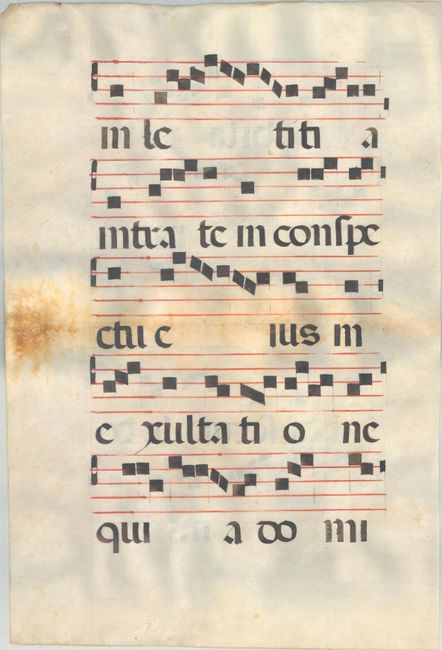 in le titi a
intra te in conspe
ctu e ius in
e xulta ti o ne
qui a do mi